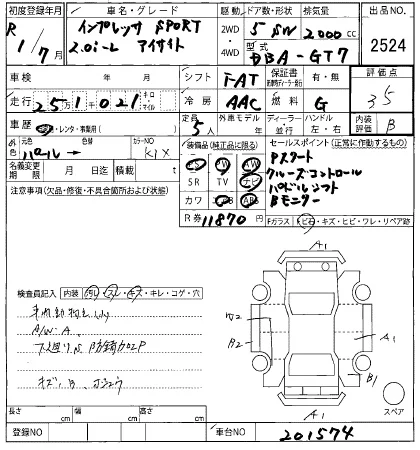 初度登録年月 車名・グレード 駆動 ドア数・形状 排気量 出品NO.
R 1/7月 インプレッサ SPORT 2WD 5 SW 2000cc 2524
2.0i-L アイサイト 4WD 型式 DBA-GT7
車検 年 月 シフト FAT 保証書 有・無 評価点
走行 251千021 キロ マイル 冷房 AAC 燃料 G 3.5
車歴 自家・レンタ・事業用( ) 定員 5人 外車モデル 年 ディーラー 並行 ハンドル 左・右 内装評価 B
外色 元色 色替 カラーNO パール KIX
装備品(純正品に限る) セールスポイント(正常に作動するもの)
名義変更期限 月 日迄 積載 t
PS PW AW Pスタート
SR TV ナビ クルーズコントロール
カワ エアB ABS パドルシフト
Bモニター
注意事項(欠品・修復・不具合箇所および状態)
R券 11870円 Fガラス トビ石・キズ・ヒビ・ワレ・リペア跡
A1
検査員記入 内装 ヨゴレ・スレ・キズ・キレ・コゲ・穴
W2
A/W・A
B2 A1
下廻りS 防錆加工P
B1
キズ、B
A1 スペア
長さ cm 幅 cm 高さ cm
登録NO 車台NO 201574